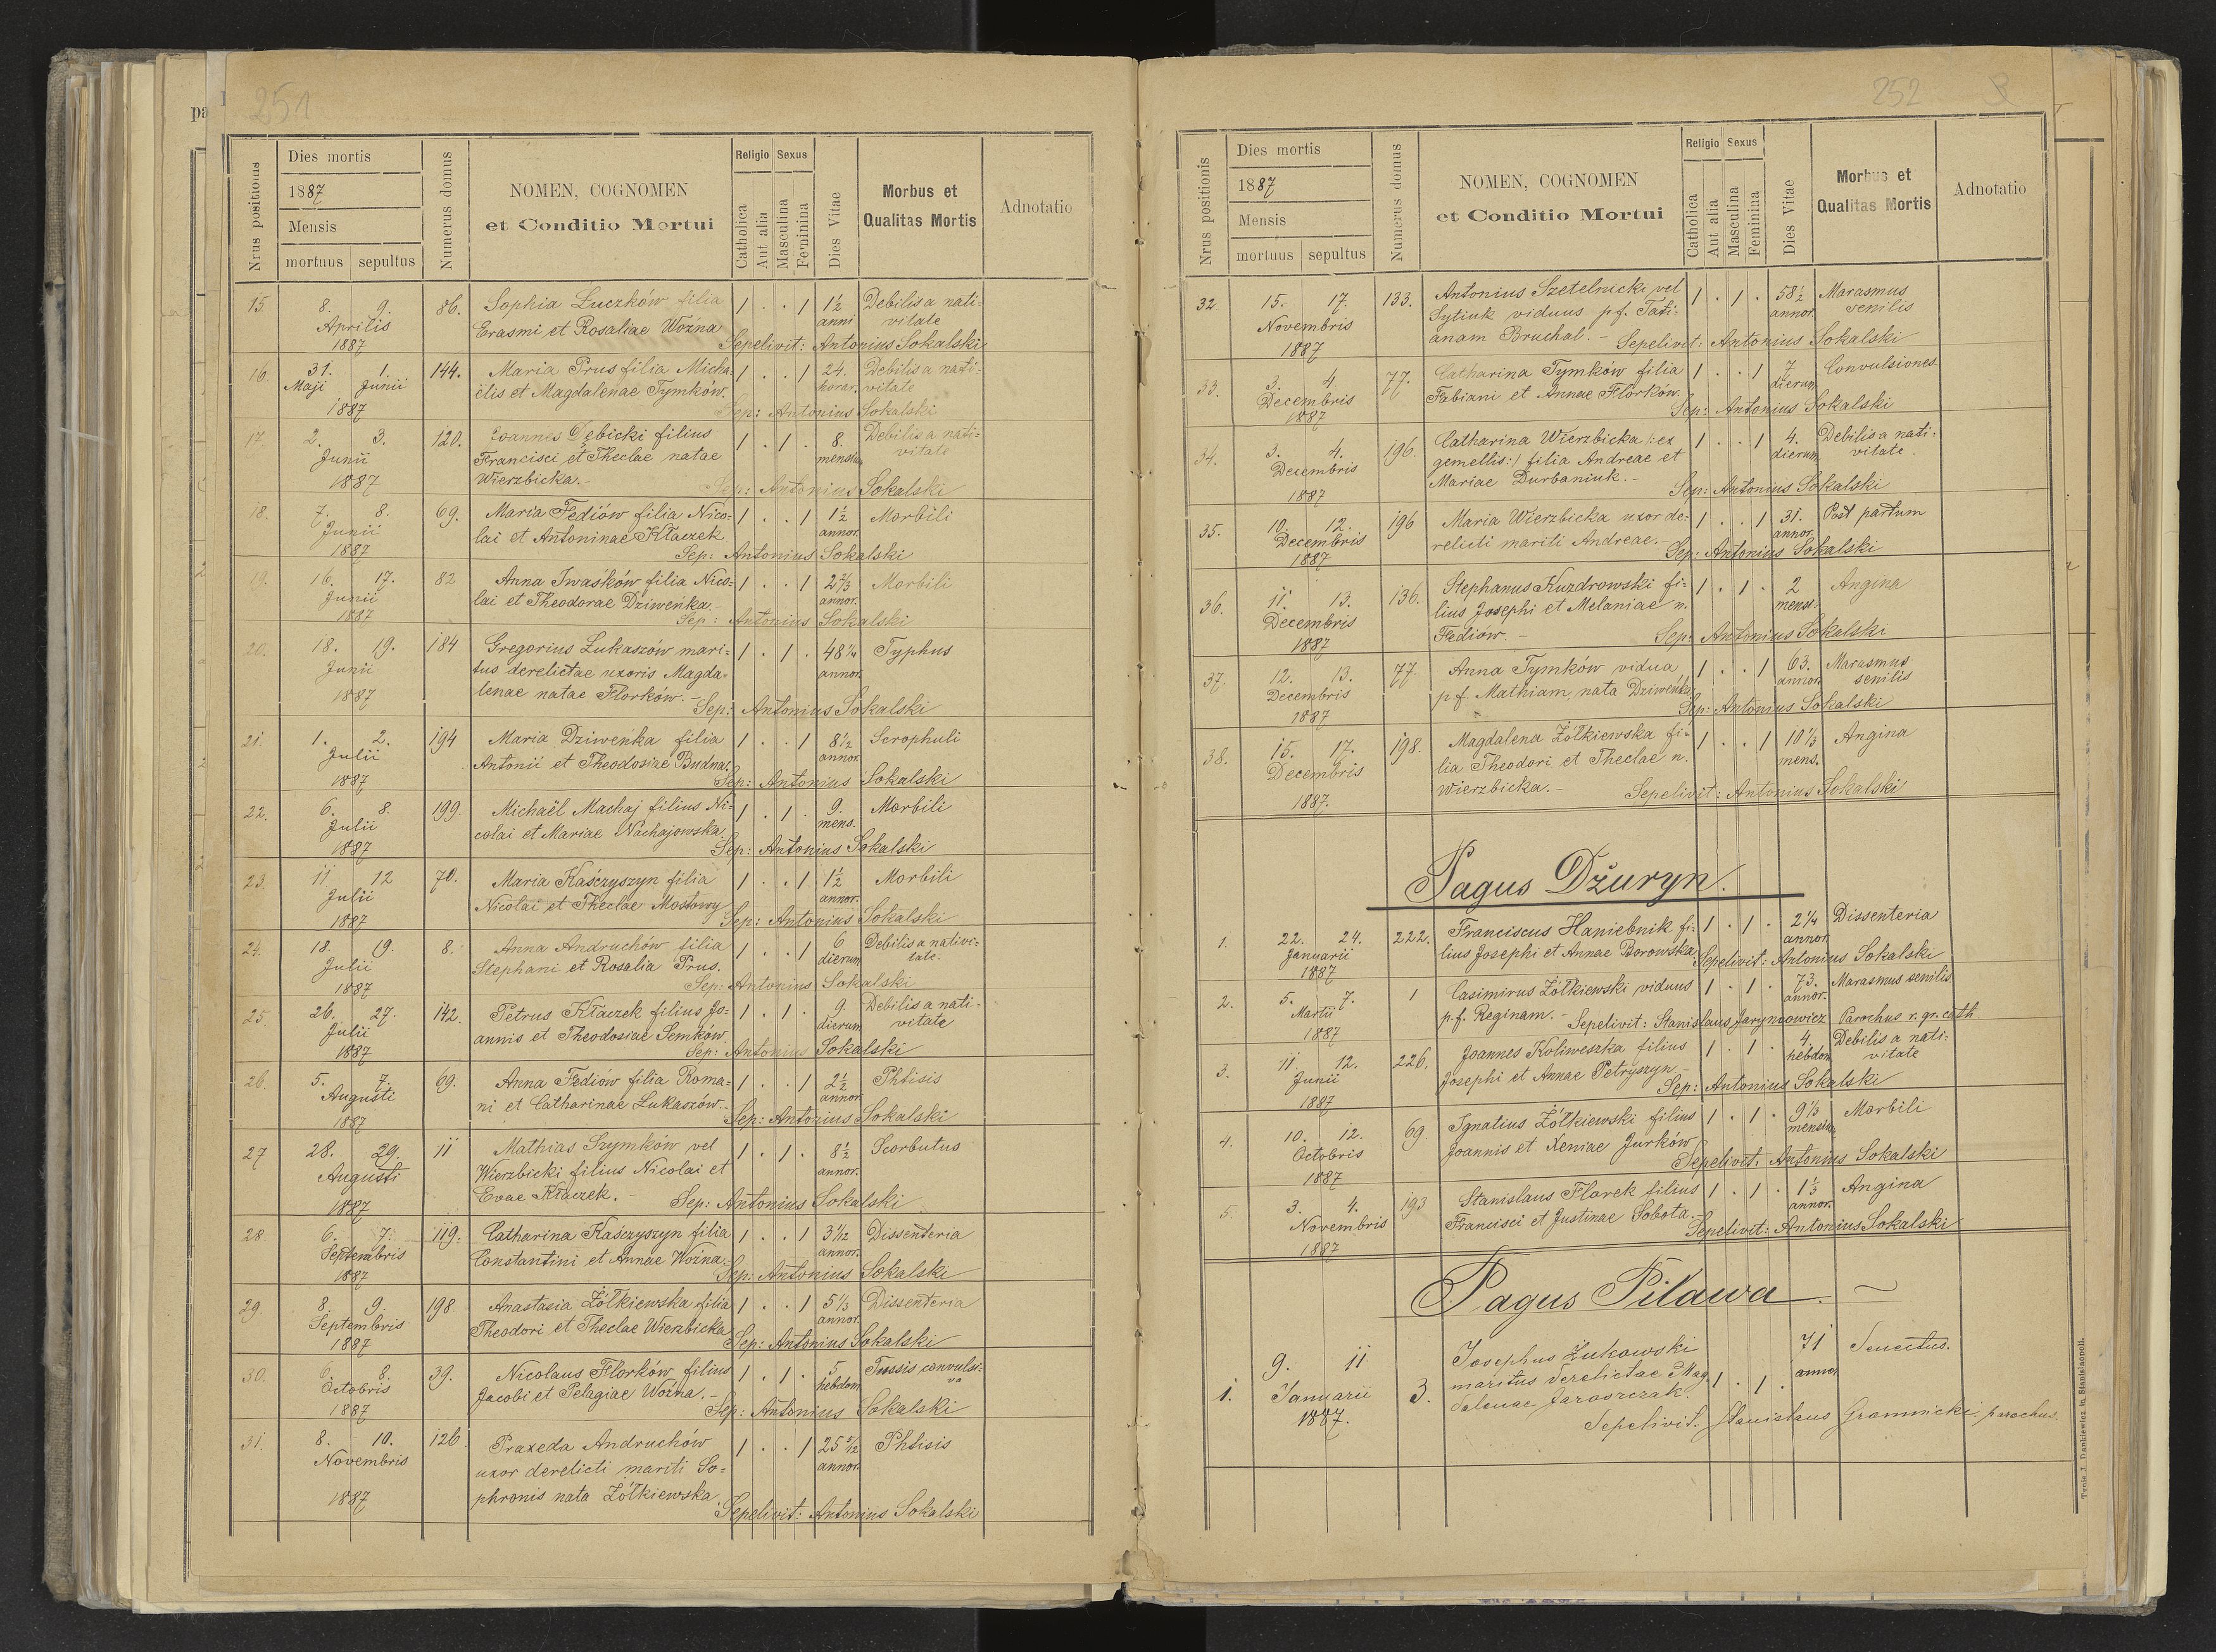 251
Nrus positionis
Dies mortis
1887
Mensis
mortuus sepultus
Numerus domus
NOMEN, COGNOMEN
et Conditio Mortui
Religio Sexus
Catholica
Aut alia
Masculina
Feminina
Dies Vitae
Morbus et
Qualitas Mortis
Adnotatio
15. 8. 9. 86. Sophia Łuczków filia 1 . . 1 1½ Debilis a nati-
Aprilis Erasmi et Rosaliae Woźna anni vitate
1887 Sepelivit: Antonius Sokalski
16. 31. 1. 144. Maria Prus filia Micha- 1 . . 1 24. Debilis a nati-
Maji Junii elis et Magdalenae Tymków. horar. vitate
1887 Sep: Antonius Sokalski
17 2. 3. 120. Joannes Dębicki filius 1 . 1 . 8. Debilis a nati-
Junii Francisci et Theclae natae mensium vitate
1887 Wierzbicka.- Sep: Antonius Sokalski
18. 7. 8. 69. Maria Fediów filia Nico- 1 . . 1 1½ Morbili
Junii lai et Antoninae Kłaczek annor.
1887 Sep: Antonius Sokalski
19. 16. 17. 82 Anna Iwaśków filia Nico- 1 . . 1 2⅔ Morbili
Junii lai et Theodorae Dziweńka.- annor.
1887 Sep: Antonius Sokalski
20. 18. 19. 184 Gregorius Łukaszów mari- 1 . 1 . 48¼ Typhus
Junii tus derelictae uxoris Magda- annor.
1887 lenae natae Florków.- Sep: Antonius Sokalski
21. 1. 2. 194 Maria Dziweńka filia 1 . . 1 8½ Scrophuli
Julii Antonii et Theodosiae Budna. annor.
1887 Sep: Antonius Sokalski
22. 6. 8. 199. Michaël Machaj filius Ni- 1 . 1 . 9. Morbili
Julii colai et Mariae Nachajowska. mens.
1887 Sep: Antonius Sokalski
23. 11. 12 70. Maria Kaśczyszyn filia 1 . . 1 1½ Morbili
Julii Nicolai et Theclae Mostowy annor.
1887 Sep: Antonius Sokalski
24. 18. 19. 8. Anna Andruchów filia 1 . . 1 6 Debilis a nativi-
Julii Stephani et Rosalia Prus. dierum tate.
1887 Sep: Antonius Sokalski
25 26. 27. 142. Petrus Kłaczek filius Jo- 1 . 1 . 9. Debilis a nati-
Julii annis et Theodosiae Semków. dierum vitate
1887 Sep: Antonius Sokalski
26. 5. 7. 69. Anna Fediów filia Roma- 1 . . 1 2½ Phtisis
Augusti ni et Catharinae Łukaszów.- annor
1887 Sep: Antonius Sokalski
27 28. 29. 11 Mathias Szymków vel 1 . 1 . 8½ Scorbutus
Augusti Wierzbicki filius Nicolai et annor.
1887 Evae Kłaczek.- Sep: Antonius Sokalski
28. 6. 7. 119. Catharina Kaśczyszyn filia 1 . . 1 3 1/12 Dissenteria
Septembris Constantini et Annae Woźna. annor.
1887 Sep: Antonius Sokalski
29. 8. 9. 198. Anastasia Żółkiewska filia 1 . . 1 5⅓ Dissenteria
Septembris Theodori et Theclae Wierzbicka annor.
1887 Sep: Antonius Sokalski
30. 6. 8. 39. Nicolaus Florków filius 1 . 1 . 5 Tussis convulsi-
Octobris Jacobi et Pelagiae Woźna.- hebdom va
1887 Sep: Antonius Sokalski
31. 8. 10. 126 Praxeda Andruchów 1 . . 1 25 5/12 Phtisis
Novembris uxor derelicti mariti So- annor.
1887 phronis nata Żółkiewska.
Sepelivit: Antonius Sokalski
252
Nrus positionis
Dies mortis
1887
Mensis
mortuus sepultus
Numerus domus
NOMEN, COGNOMEN
et Conditio Mortui
Religio Sexus
Catholica
Aut alia
Masculina
Feminina
Dies Vitae
Morbus et
Qualitas Mortis
Adnotatio
32. 15. 17. 133. Antonius Szetelnicki vel 1 . 1 . 58½ Marasmus
Novembris Sytiuk viduus p.f. Tati- annor. senilis
1887 anam Bruchal.- Sepelivit: Antonius Sokalski
33. 3. 4. 77. Catharina Tymków filia 1 . . 1 7 Convulsiones
Decembris Fabiani et Annae Florków. dierum
1887 Sep: Antonius Sokalski
34. 3. 4. 196. Catharina Wierzbicka /:ex 1 . . 1 4. Debilis a nati-
Decembris gemellis:/ filia Andreae et dierum vitate.
1887 Mariae Durbaniuk.- Sep: Antonius Sokalski
35. 10. 12. 196 Maria Wierzbicka uxor de- 1 . . 1 31. Post partum
Decembris relicti mariti Andreae.- annor.
1887 Sep: Antonius Sokalski
36. 11. 13. 136. Stephanus Kuzdrowski fi- 1 . 1 . 2 Angina
Decembris lius Josephi et Melaniae n. mens.
1887 Fediów.- Sep: Antonius Sokalski
37. 12. 13. 77. Anna Tymków vidua 1 . . 1 63. Marasmus
Decembris p.f. Mathiam nata Dziweńka annor. senilis
1887 Sep: Antonius Sokalski
38. 15. 17. 198. Magdalena Żółkiewska fi- 1 . . 1 10⅓ Angina
Decembris lia Theodori et Theclae n. mens.
1887. Wierzbicka.- Sepelivit: Antonius Sokalski
Pagus Dżuryn.
1. 22. 24. 222. Franciscus Haniebnik fi- 1 . 1 . 2¼ Dissenteria
Januarii lius Josephi et Annae Borowska. annor.
1887 Sepelivit: Antonius Sokalski
2. 5. 7. 1 Casimirus Żółkiewski viduus 1 . 1 . 73. Marasmus senilis
Martii p.f. Reginam.- annor.
1887 Sepelivit: Stanislaus Jarymowicz Parochus r. gr. cath.
3. 11. 12. 226. Joannes Koliweszka filius 1 . 1 . 4. Debilis a nati-
Junii Josephi et Annae Petryszyn hebdom. vitate
1887 Sep: Antonius Sokalski
4. 10. 12. 69. Ignatius Żółkiewski filius 1 . 1 . 9⅓ Morbili
Octobris Joannis et Xeniae Jurków mensium
1887 Sepelivit: Antonius Sokalski
5. 3. 4. 193 Stanislaus Florek filius 1 . 1 . 1⅓ Angina
Novembris Francisci et Justinae Sobota.- annor.
1887 Sepelivit: Antonius Sokalski
Pagus Piława.
1. 9. 11 3. Josephus Żukowski 1 . 1 . 71 Senectus.
Januarii maritus derelictae Mag- annor
1887. dalenae Jaroszczak.
Sepelivit: Stanislaus Gromnicki parochus.
Typis J. Dankiewicz in Stanislaopoli.